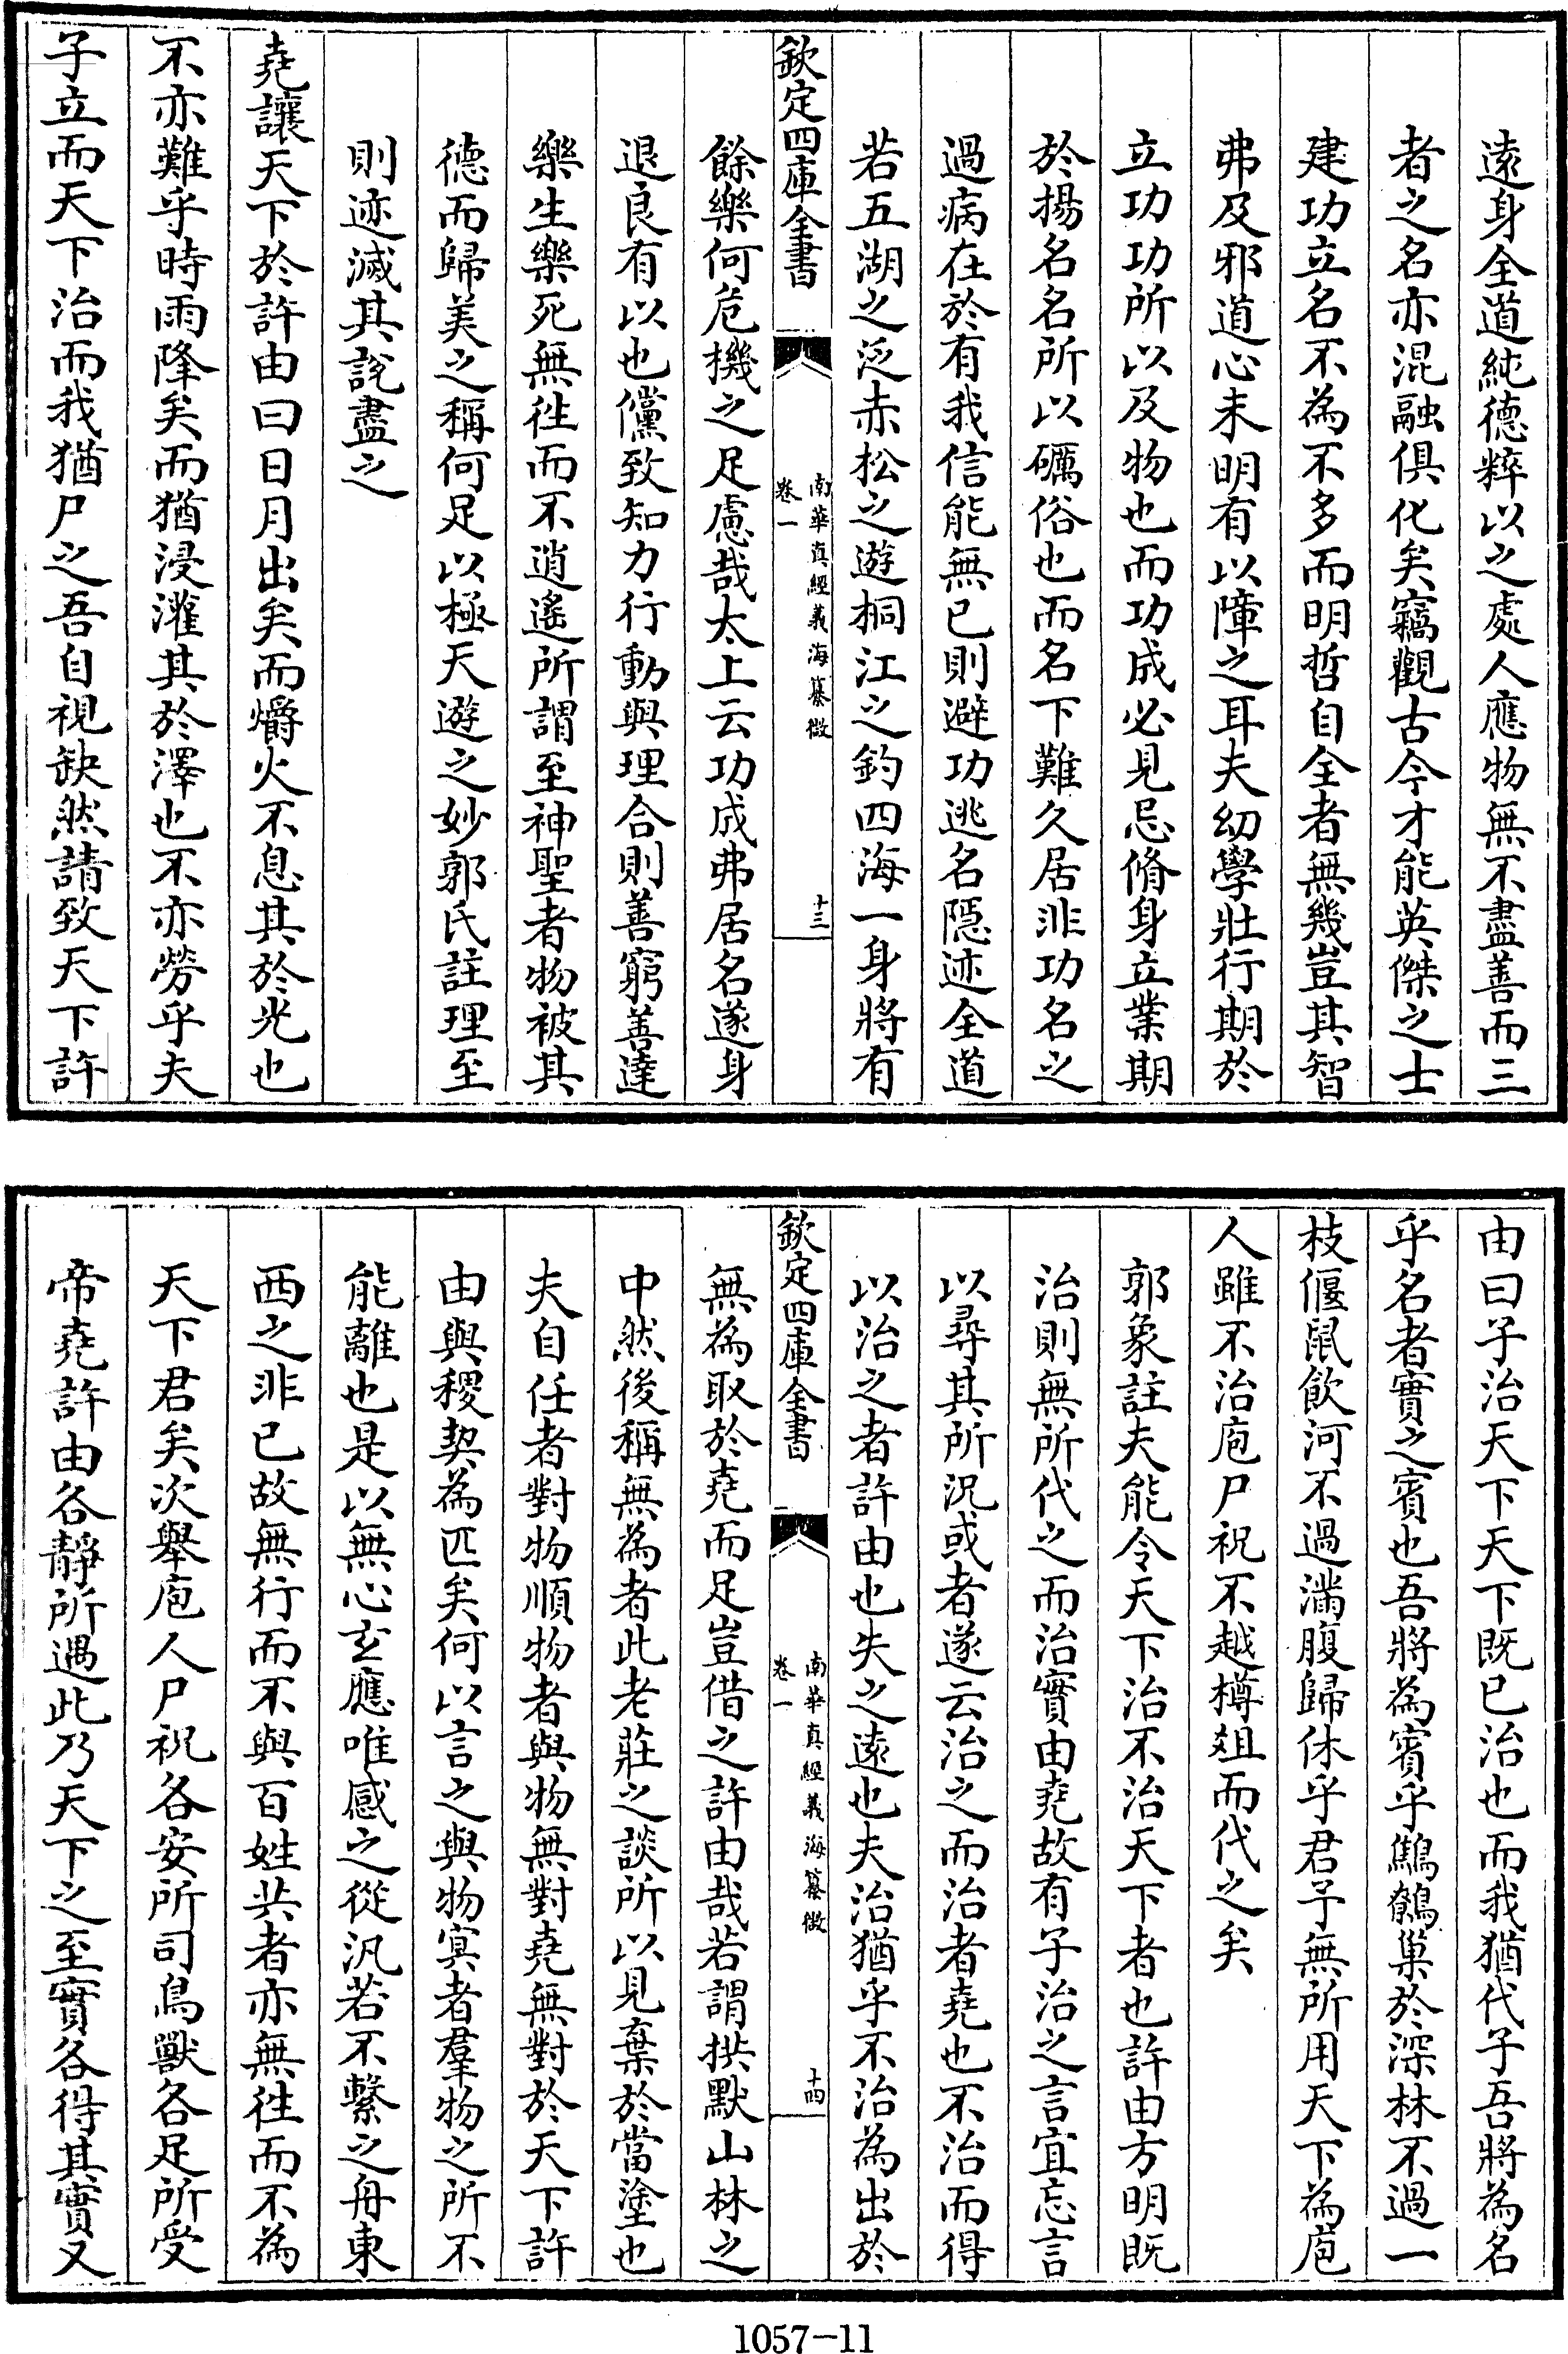 遠身全道純德粹以之處人應物無不盡善而三
者之名亦混融俱化矣竊觀古今才能英傑之士
建功立名不為不多而明哲自全者無幾豈其智
弗及邪道心未明有以障之耳夫幼學壯行期於
立功功所以及物也而功成必見忌脩身立業期
於揚名名所以礪俗也而名下難久居非功名之
過病在於有我信能無已則避功逃名隱迹全道
若五湖之泛赤松之遊桐江之釣四海一身將有
欽定四庫全書
南華真經義海纂微
卷一
十三
餘樂何危機之足慮哉太上云功成弗居名遂身
退良有以也儻致知力行動與理合則善窮善達
樂生樂死無徃而不逍遙所謂至神聖者物被其
德而歸美之稱何足以極天遊之妙郭氏註理至
則迹滅其說盡之
堯讓天下於許由曰日月出矣而爝火不息其於光也
不亦難乎時雨降矣而猶浸灌其於澤也不亦勞乎夫
子立而天下治而我猶尸之吾自視缺然請致天下許
由曰子治天下天下既已治也而我猶代子吾將為名
乎名者實之賓也吾將為賓乎鷦鷯巢於深林不過一
枝偃鼠飲河不過滿腹歸休乎君予無所用天下為庖
人雖不治庖尸祝不越樽俎而代之矣
郭象註夫能令天下治不治天下者也許由方明既
治則無所代之而治實由堯故有子治之言宜忘言
以尋其所況或者遂云治之而治者堯也不治而得
以治之者許由也失之遠也夫治猶乎不治為出於
欽定四庫全書
南華真經義海纂微
卷一
十四
無為取於堯而足豈借之許由哉若謂拱默山林之
中然後稱無為者此老莊之談所以見棄於當塗也
夫自任者對物順物者與物無對堯無對於天下許
由與稷契為匹矣何以言之與物冥者羣物之所不
能離也是以無心玄應唯感之從汎若不繫之舟東
西之非已故無行而不與百姓共者亦無徃而不為
天下君矣次舉庖人尸祝各安所司鳥獸各足所受
帝堯許由各靜所遇此乃天下之至實各得其實又
1057-11